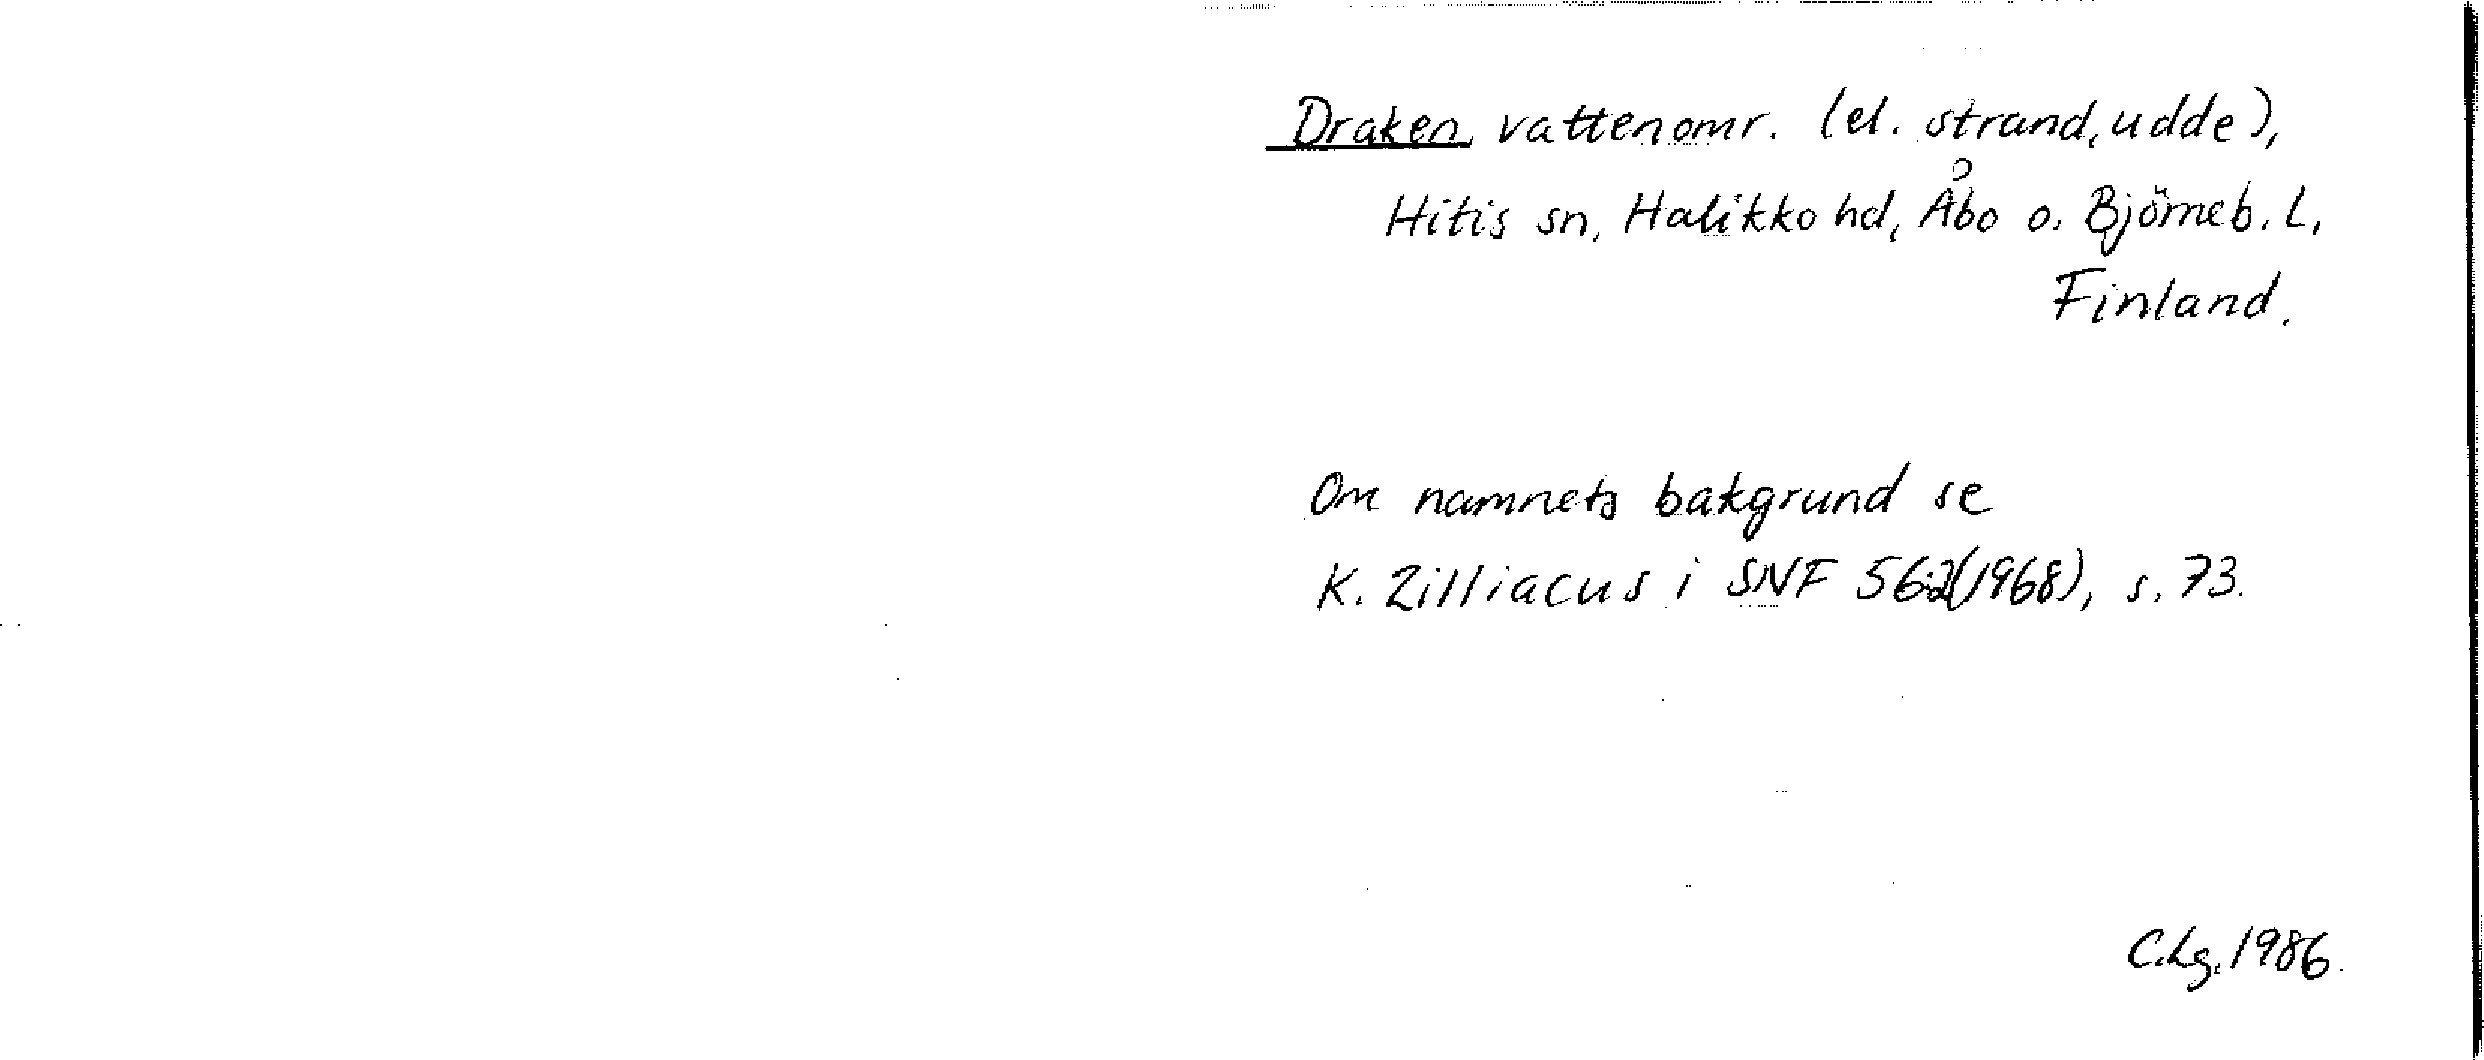 Draken, vattenomr. (el. strand, udde),
Hitis sn, Halikko hd, Åbo o. Björneb. L,
Finland.
Om namnets bakgrund se
K. Zilliacus i SNF 56:2(1968), s. 73.
C.Lg. 1986.